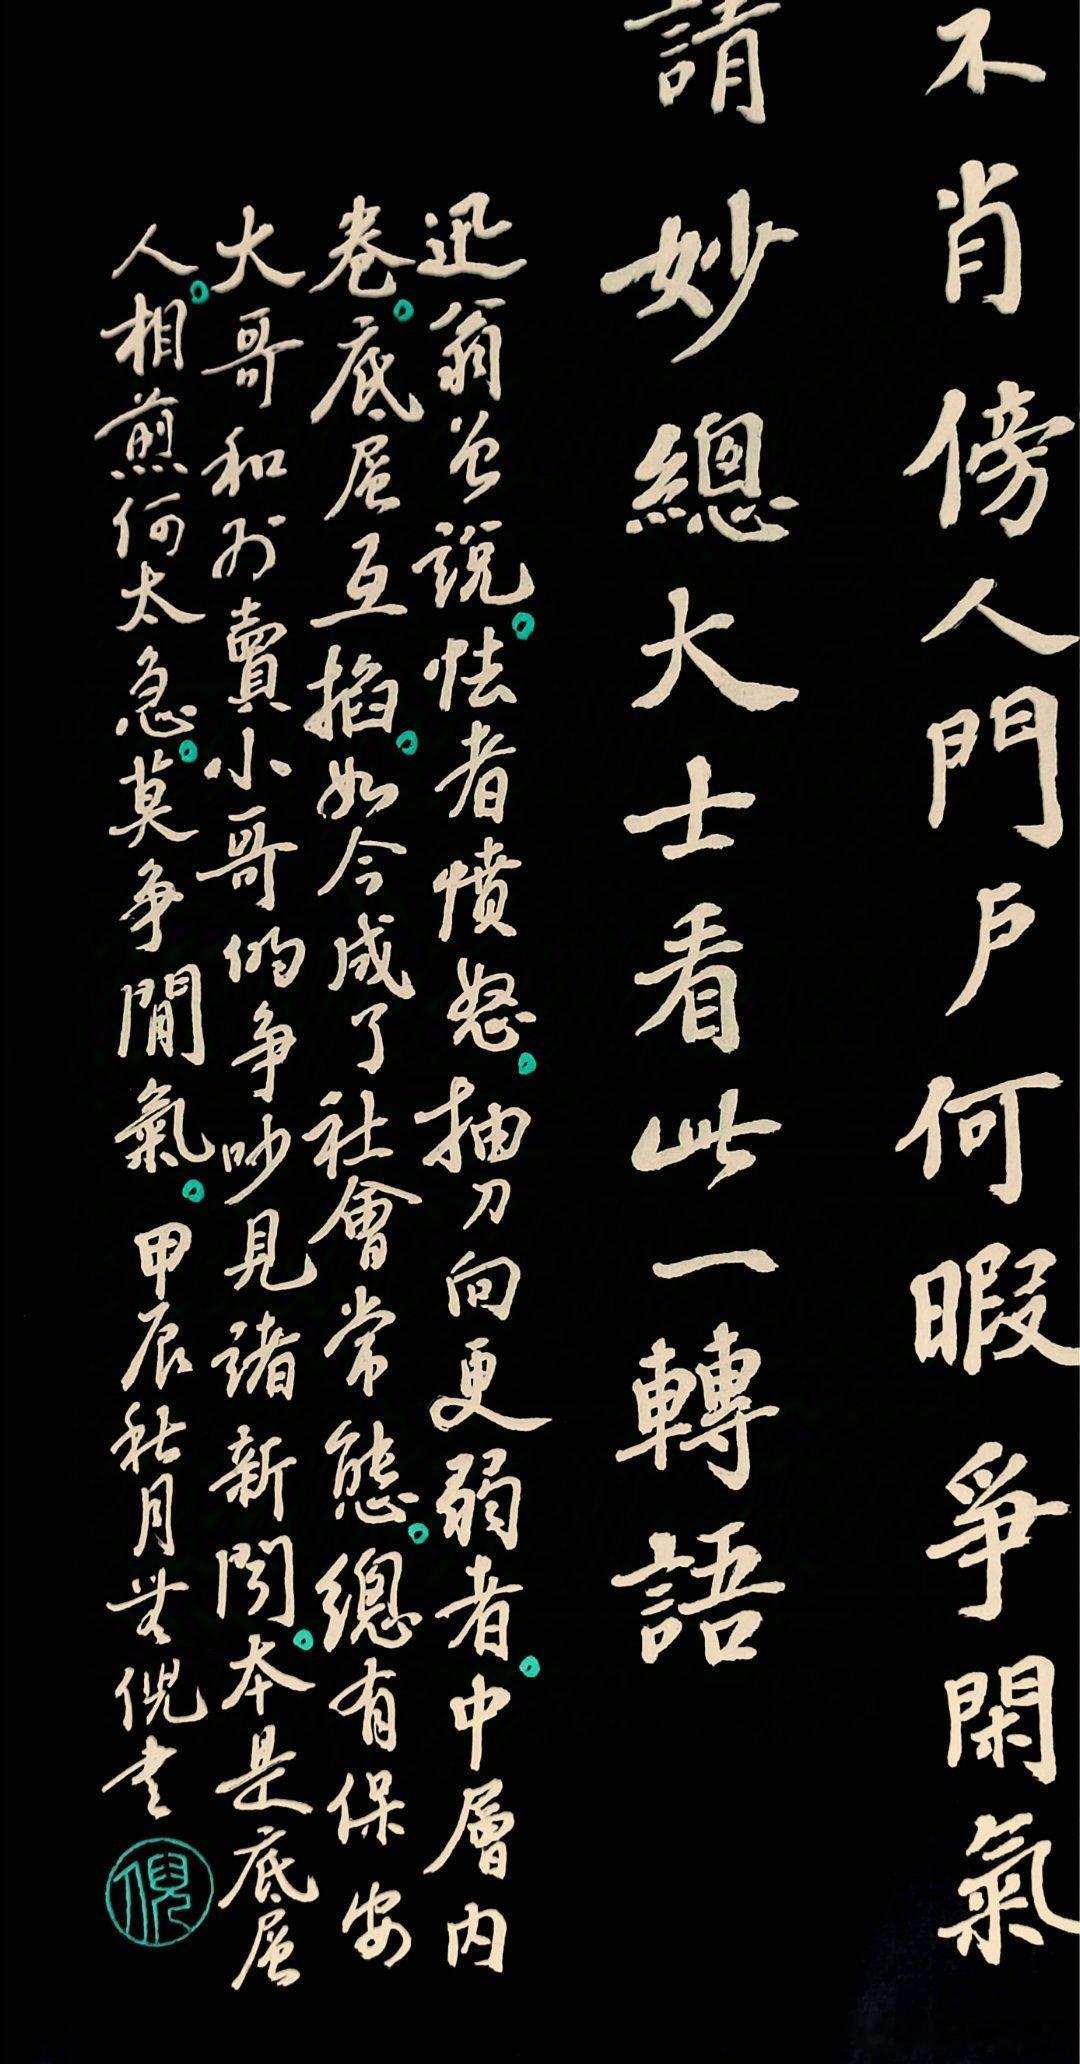 不肖傍人門戶何暇爭閑氣
請妙總大士看此一轉語
迅翁曾說。怯者憤怒。抽刀向更弱者。中層内
卷。底层互掐。如今成了社會常態。總有保安
大哥和外賣小哥的争吵見諸新闻。本是底层
人。相煎何太急。莫争閒氣。甲辰秋月無倪书
倪